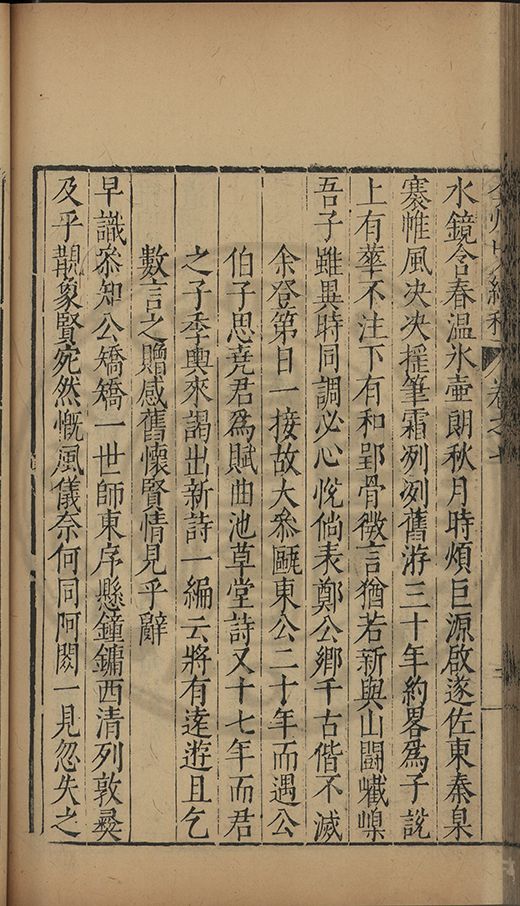 弇州山人續稿 卷之
水鏡含春温氷壷朗秋月時煩巨源啟遂佐東秦臬
褰帷風泱泱揺筆霜冽冽舊游三十年約畧爲子説
上有華不注下有和郢骨微言猶若新與山鬪巀嵲
吾子雖異時同調必心悅倘表鄭公鄉千古偕不滅
余登第日一接故大叅甌東公二十年而遇公
伯子思堯君爲賦曲池草堂詩又十七年而君
之子季輿來謁出新詩一編云將有逺遊且乞
數言之贈感舊懷賢情見乎辭
早識叅知公矯矯一世師東序懸鐘鏞西清列敦彝
及乎覯象賢宛然慨風儀奈何同阿閦一見忽失之